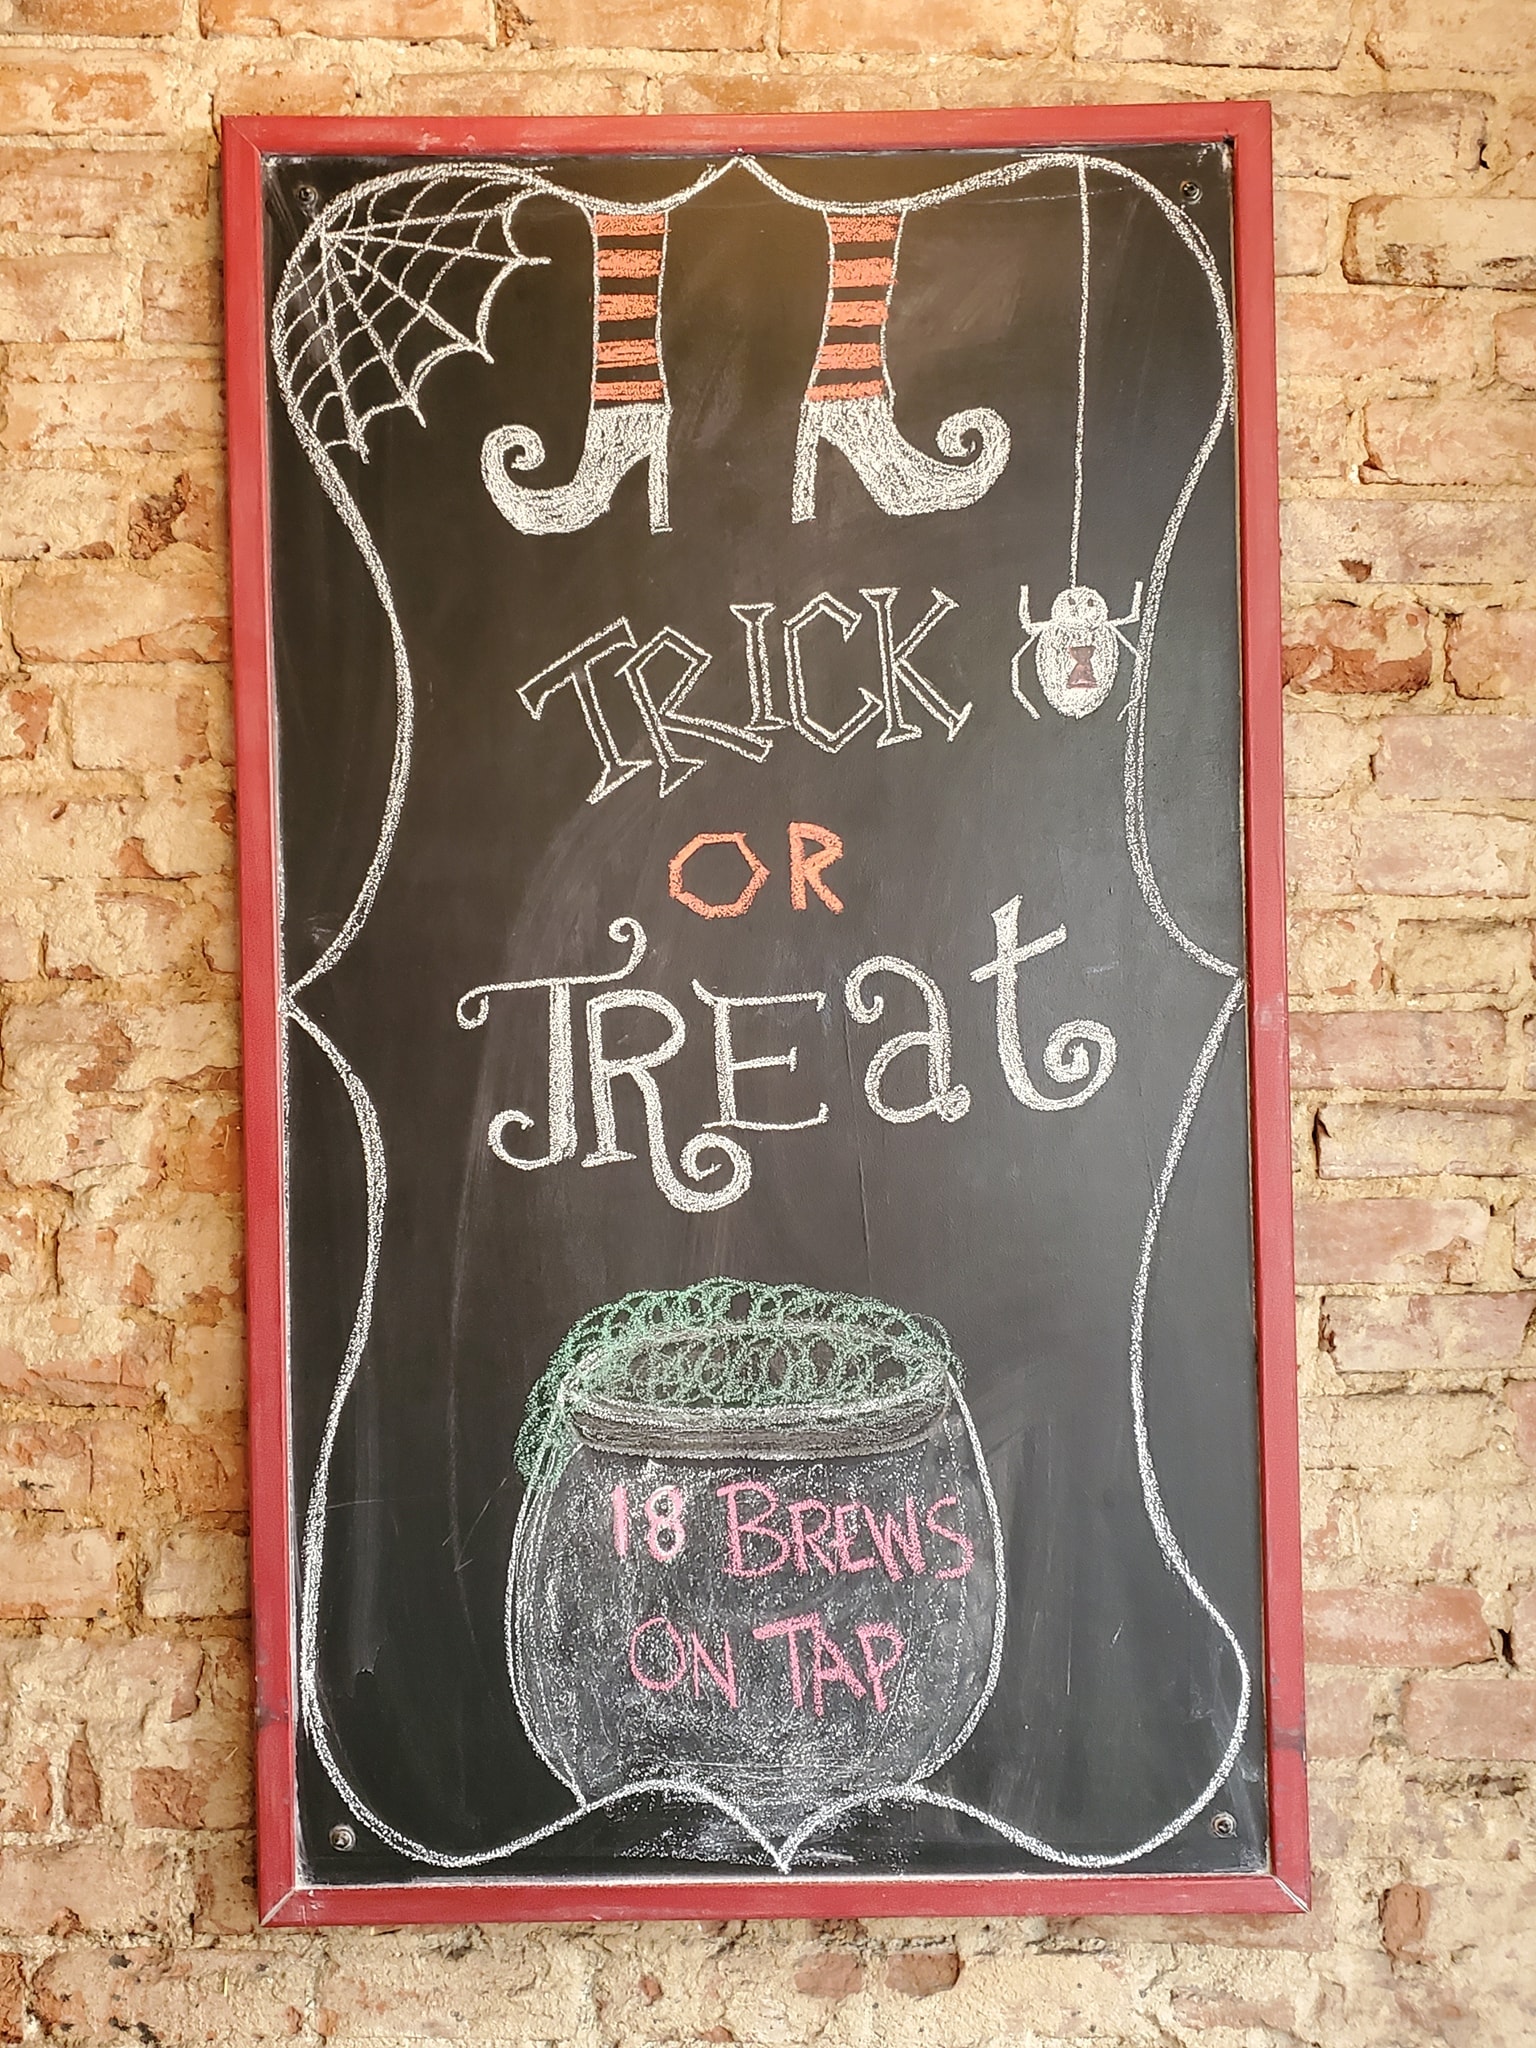 TRICK
OR
TREat
18 BREWS
ON TAP